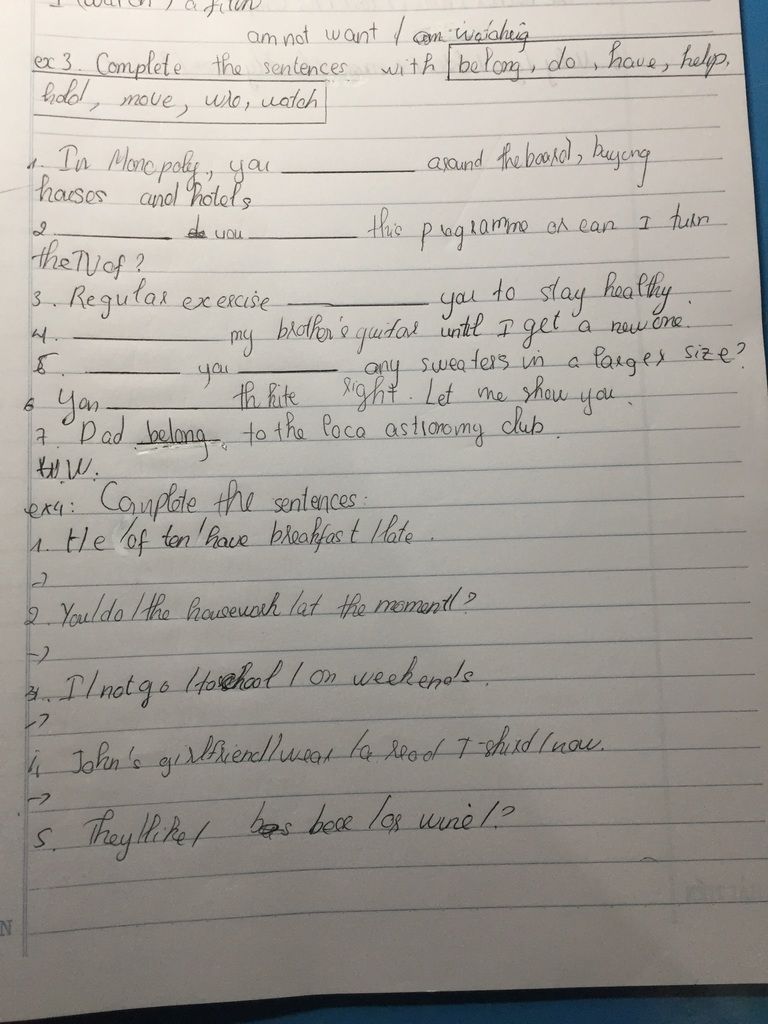 I (watch) a film
am not want / am watching
ex 3. Complete the sentences with belong, do, have, help,
hold, move, use, watch
1. In Monopoly, you ________ around the board, buying
houses and hotels
2 ________ you ________ this programme or can I turn
the TV of?
3. Regular exercise ________ you to stay healthy.
4. ________ my brother's guitar until I get a new one.
5. ________ you ________ any sweaters in a larger size?
6 You ________ th kite right. Let me show you.
7. Dad belong to the loca astronomy club.
H.W.
ex4: Complete the sentences:
1. He /of ten/have breakfast /late.
->
2. You/do/the housework /at the moment/?
->
3. I/not go /to school / on weekends.
->
4 John's girlfriend/wear /a read T-shird/now.
->
5. They/like/ bee /or wine/?
N